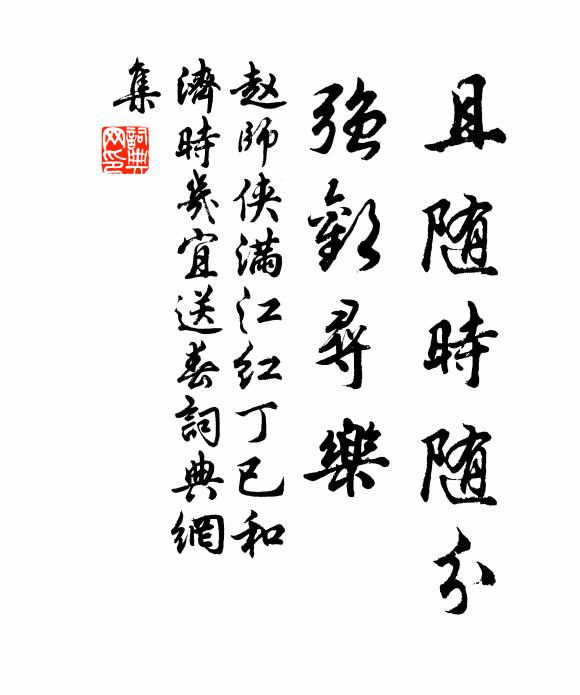 且随時随分
強歡尋樂
赵師侠滿江红丁巳和
濟時幾宜送春詞典網
集
詞典網印